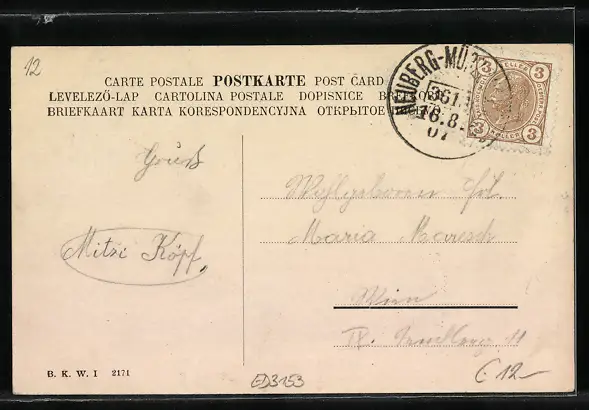 12
CARTE POSTALE POSTKARTE POST CARD
LEVELEZŐ-LAP CARTOLINA POSTALE DOPISNICE
BRIEFKAART KARTA KORESPONDENCYJNA ОТКРЫТОЕ
NEUBERG-MÜRZ
16.8
07
3 3
HELLER
3 3
Gruß
Mitzi Köpf,
Wohlgeboren Frl.
Maria Maresch
Wien
IX. 11
B. K. W. I 2171
ED3153
€ 12-